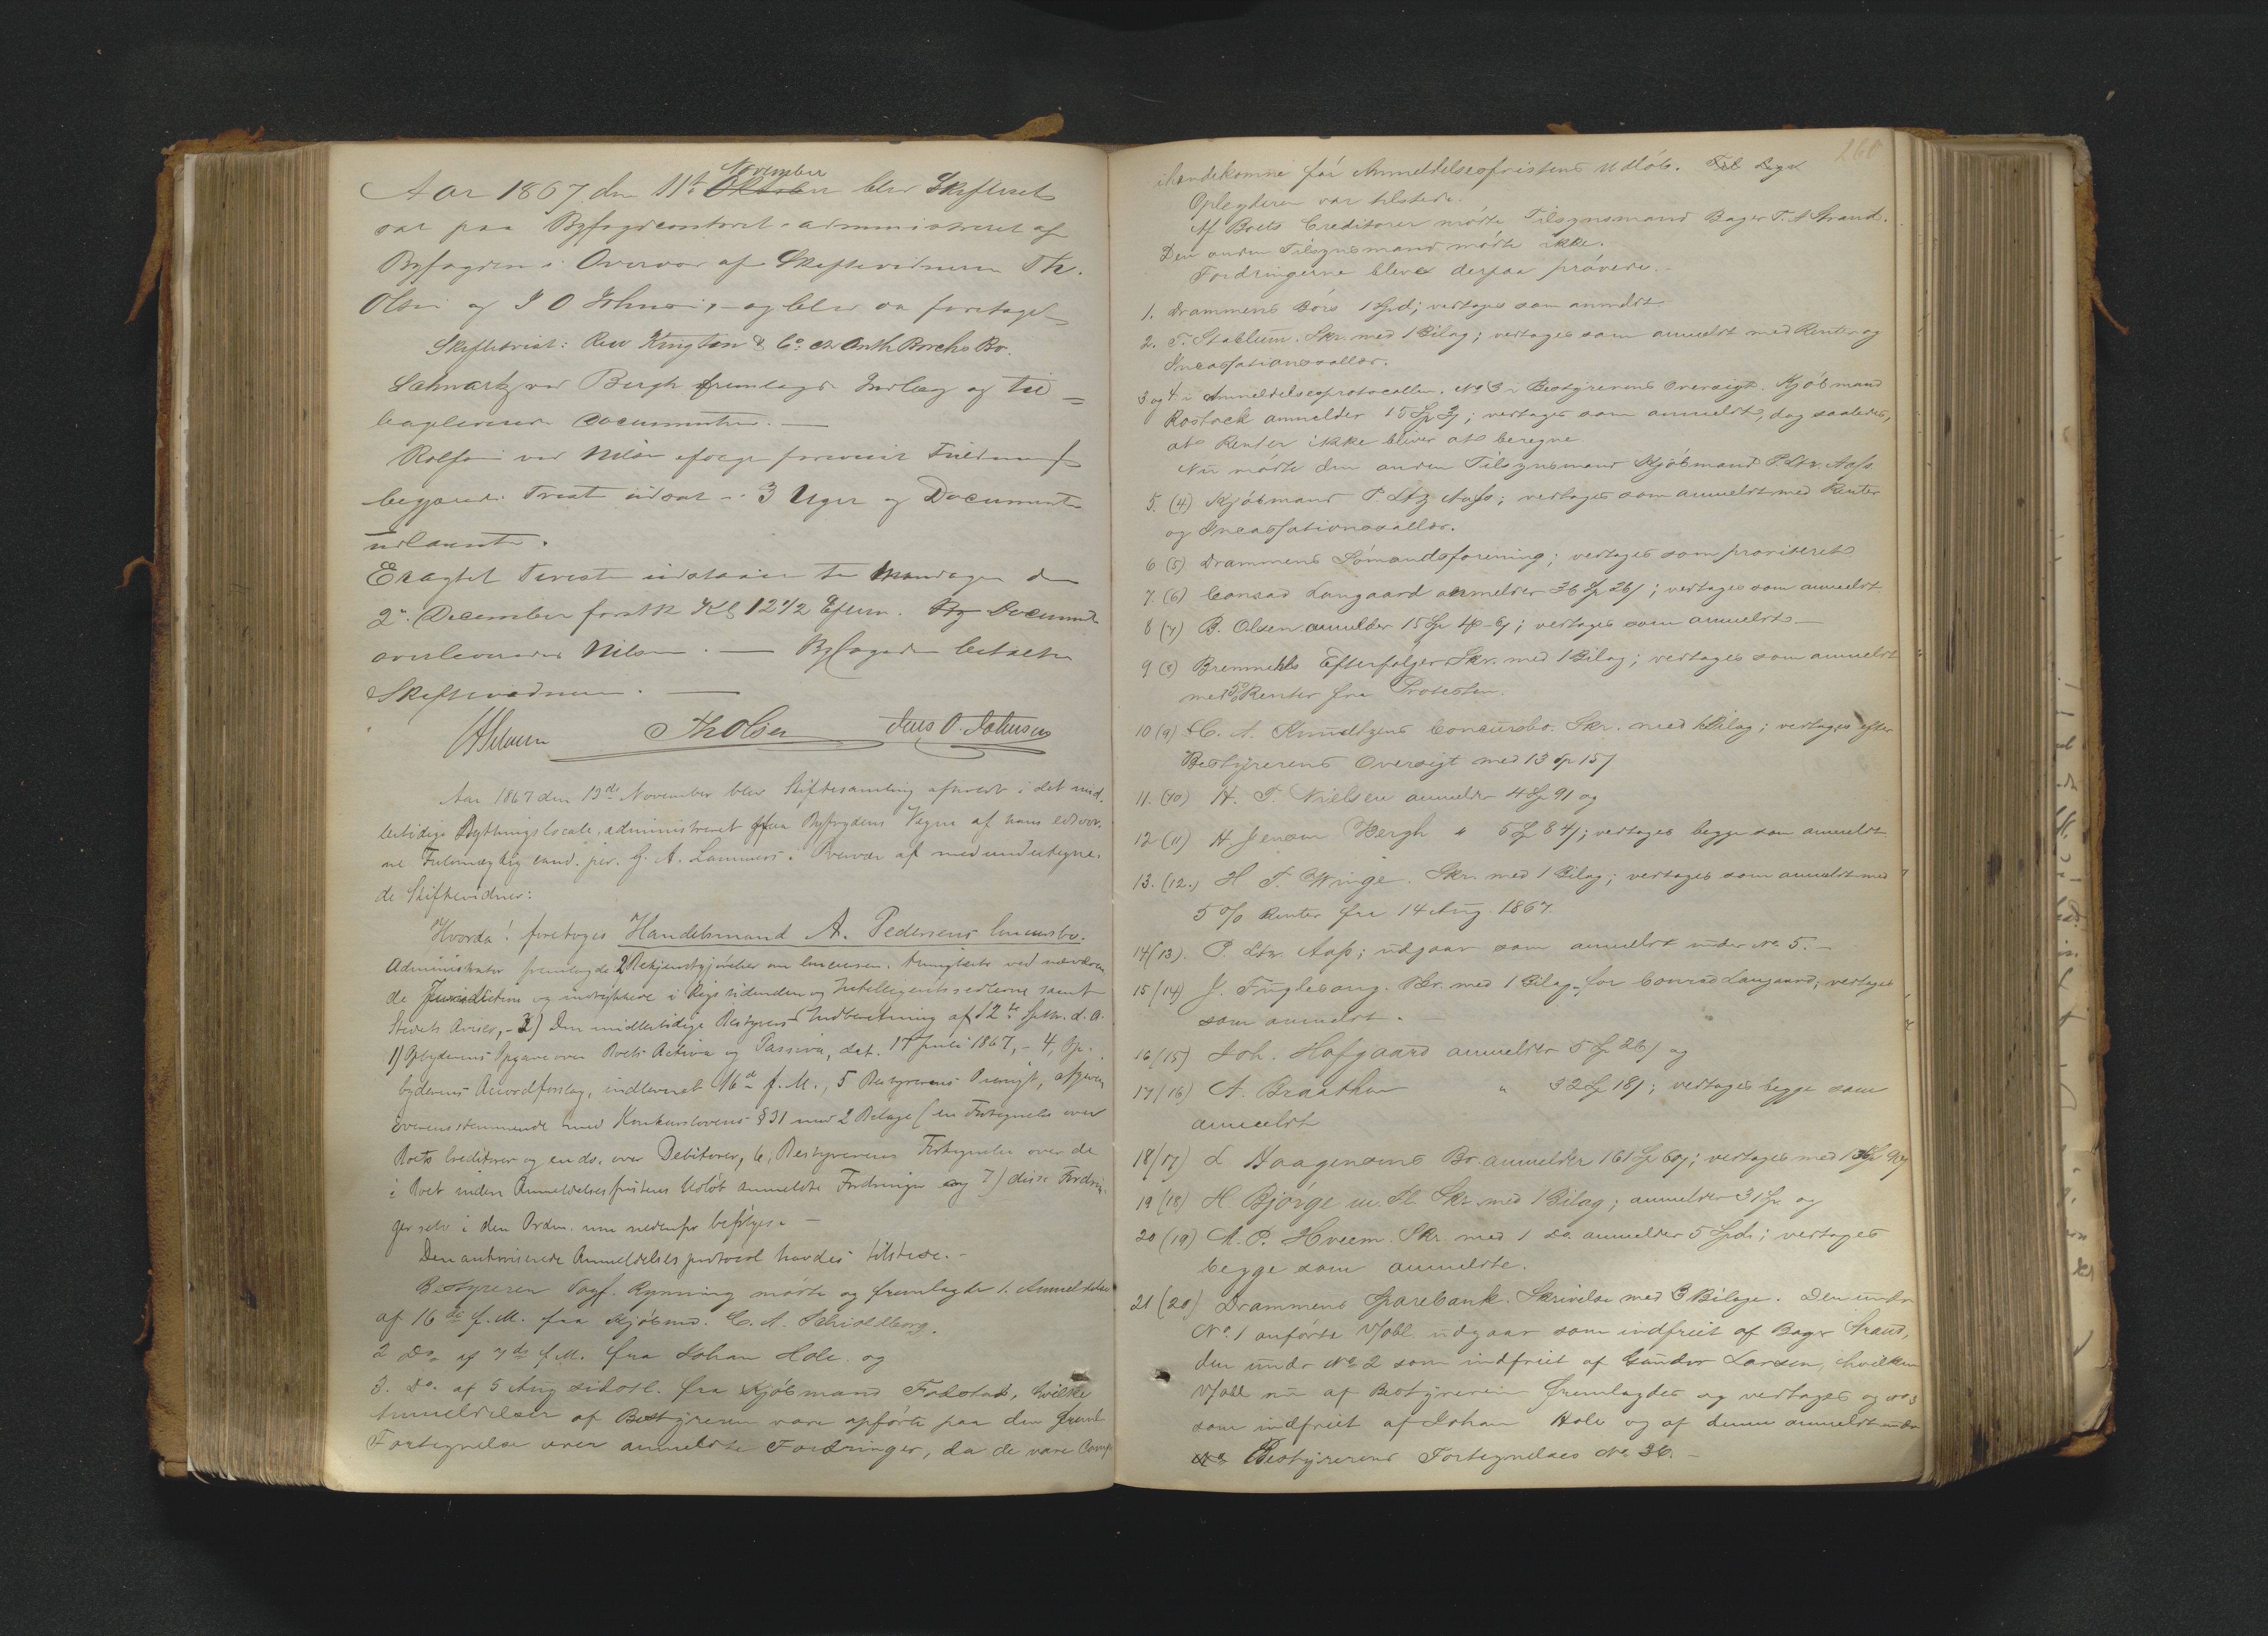 November
Aar 1867 den 11te Oktober blev Skifteret
sat paa Byfogedcontoret administreret af
Byfogden i Overvær af Skiftevidnerne Th.
Olsen og J O Johnsen, og blev da foretaget
Skiftetvist: Rew Kington & Co ctr Anth Borchs Bo.
Schwartz ved Bergh fremlagde Indlæg og til=
bageleverede Documenterne. —
Rolfsen ved Nilsen ifølge forevist Fuldmagt
begjærede Tvisten udsat i 3 Uger og Documenterne
udlaante.
Eragtet Tvisten udstaar til Mandagen den
2den December førstk Kl 12 1/2 Efterm. By Documenterne
overleveredes Nilsen. — Byfogden betalte
Skiftevidnerne. —
Th Olsen Jens O. Johnsen
Aar 1867 den 13de November blev Skiftesamling afholdt i det mid-
lertidige Bythingslocale, administreret paa Byfogdens Vegne af hans edsvor-
ne Fuldmægtig cand. jur. G. A. Lammers i Overvær af medundertegne-
de Skiftevidner:
Hvorda! foretoges Handelsmand A. Pedersens Concursbo.
Administrator fremlagde 2 Bekjendtgjørelser om Concursen, thinglæste ved nærværen
de Jurisdiction og indrykkede i Rigstidenden og Intelligentssedlerne samt
Stedets Aviser, - 2) Den midlertidige Bestyrers Indberetning af 12te Septbr. d. A.
1) Opbyderens Opgave over Boets Activa og Passiva, dat. 17 Juli 1867, - 4, Op-
byderens Accordforslag, indleveret 16de f. M., 5 Bestyrerens Oversigt, afgiven
overensstemmende med Konkurslovens § 31 med 2 Bilage (en Fortegnelse over
Boets Creditorer og en do. over Debitorer, 6, Bestyrerens Fortegnelse over de
i Boet inden Anmeldelsesfristens Udløb anmeldte Fordringer og 7) disse Fordrin-
ger selv i den Orden, som nedenfor befølges —
Den authoriserede Anmeldelsesprotocol havdes tilstede. -
Bestyreren Sagf. Rynning mødte og fremlagde 1. Anmeldelse
af 16de f. M. fra Kjøbmd. C. A. Schioldborg.
2 Do af 7de f. M. fra Johan Hole og
3. Do. af 5 Aug sidstl. fra Kjøbmand Fokstad, hvilke
Anmeldelser af Bestyreren vare opførte paa den freml
Fortegnelse over anmeldte Fordringer, da de vare
260
ihændekomne før Anmeldelsesfristens Udløb.
Opbyderen var tilstede.
Af Boets Creditorer mødte Tilsynsmand Bager P. A Strand.
Den anden Tilsynsmand mødte ikke.
Fordringerne bleve derpaa prøvede. -
1. Drammens Børs 1 Spd; vedtages som anmeldt
2. T. Stablum. Skr. med 1 Bilag; vedtages som anmeldt med Renter og
Incassationssallær.
3 og 4 i Anmeldelsesprotocollen. No 3 i Bestyrerens Oversigt. Kjøbmand
Rostock anmelder 15 Sp; vedtages som anmeldt, dog saaledes,
at Renter ikke bliver at beregne
Nu mødte den anden Tilsynsmand Kjøbmand P. Ltz. Aass
5. (4) Kjøbmand P. Ltz Aass; vedtages som anmeldt med Renter
og Incassationssallær.
6 (5) Drammens Sømandsforening; vedtages som prioriteret
7. (6) Conrad Langaard anmelder 36 Sp 26; vedtages som anmeldt
8 (7) B. Olsen anmelder 15 Sp; vedtages som anmeldt —
9 (8) Bremmells Efterfølger Skr. med 1 Bilag; vedtages som anmeldt
med 5% Renter fra Protesten.
10 (9) C. A. Knudtzens Concursbo. Skr. med 1 Bilag; vedtages efter
Bestyrerens Oversigt med 13 Sp 15
11. (10) H. P. Nielsen anmelder 4 Sp 91 og
12 (11) H Jenson Bergh " 5 Sp 84; vedtages begge som anmeldt
13. (12.) H. P. Winge. Skr. med 1 Bilag; vedtages som anmeldt med
5 % Renter fra 14 Aug. 1867.
14 (13). P. Ltz. Aass; udgaar som anmeldt under No 5. —
15 (14) J. Fuglesang. Skr. med 1 Bilag for Conrad Langaard; vedtages
som anmeldt. —
16 (15) Joh. Hofgaard anmelder 5 Sp 26 og
17 (16) A. Braathen " 32 Sp 18; vedtages begge som
anmeldt
18 (17) L Haagensens Bo. anmelder 161 Sp 60; vedtages med
19 (18) H. Bjørge m. Fl. Skr. med 1 Bilag; anmelder 31 Sp. og
20 (19) A. P. Hveem. Skr. med 1 do. anmelder 5 Spd; vedtages
begge som anmeldte.
21 (20) Drammens Sparebank. Skrivelse med 3 Bilage. Den under
No. 1 anførte Vexel udgaar som indfriet af Bager Strand,
den under No 2 som indfriet af Gunder Larsen, hvilken
Vexel nu af Bestyreren fremlagdes og vedtages og No 3
som indfriet af Johan Hole og af denne anmeldt under
Bestyrerens Fortegnelses No. 36. -